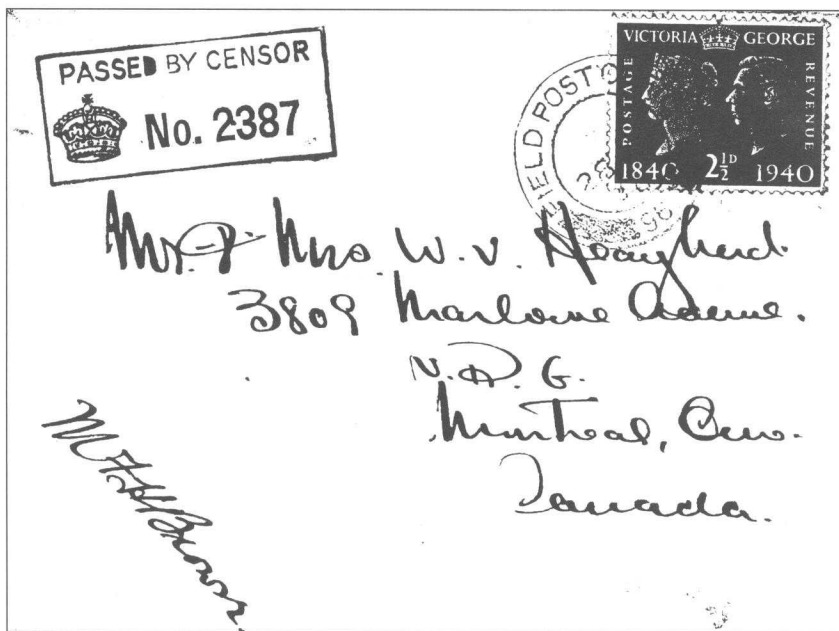 PASSED BY CENSOR
No. 2387
VICTORIA GEORGE
POSTAGE
REVENUE
1840 2½D 1940
FIELD POST O
28
Mr. & Mrs. W. V.
3809 Marlowe Avenue.
N. D. G.
Montreal, Que.
Canada.
M F H Brown